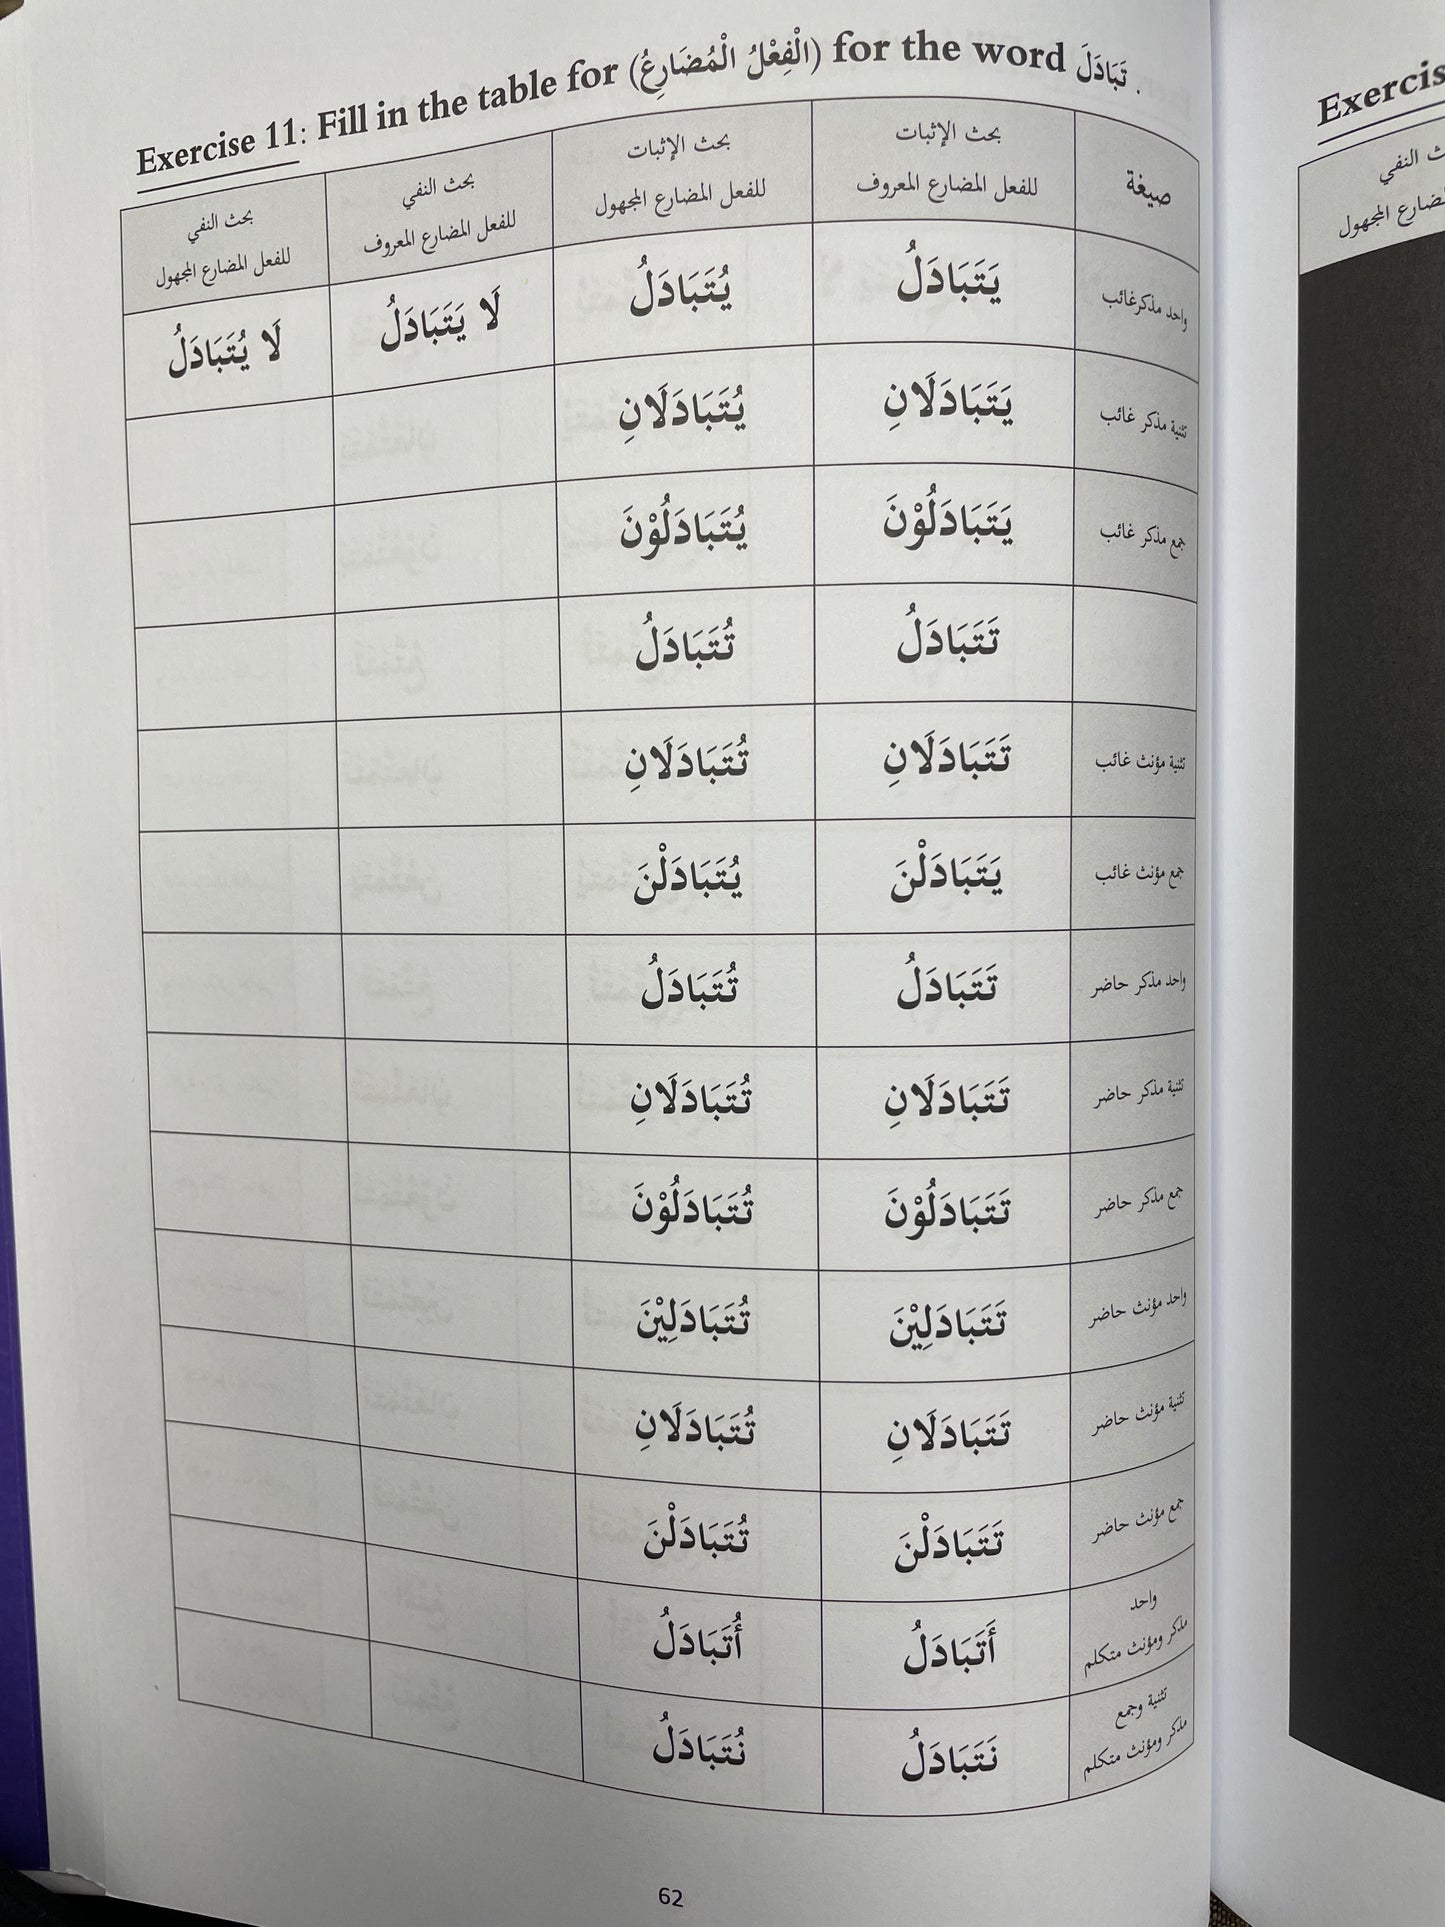 Exercise 11: Fill in the table for (الْفِعْلُ الْمُضَارِعُ) for the word تَبَادَلَ .
صيغة
بحث الإثبات
للفعل المضارع المعروف
بحث الإثبات
للفعل المضارع المجهول
بحث النفي
للفعل المضارع المعروف
بحث النفي
للفعل المضارع المجهول
واحد مذكرغائب يَتَبَادَلُ يُتَبَادَلُ لَا يَتَبَادَلُ لَا يُتَبَادَلُ
تثنية مذكر غائب يَتَبَادَلَانِ يُتَبَادَلَانِ
جمع مذكر غائب يَتَبَادَلُوْنَ يُتَبَادَلُوْنَ
تَتَبَادَلُ تُتَبَادَلُ
تثنية مؤنث غائب تَتَبَادَلَانِ تُتَبَادَلَانِ
جمع مؤنث غائب يَتَبَادَلْنَ يُتَبَادَلْنَ
واحد مذكر حاضر تَتَبَادَلُ تُتَبَادَلُ
تثنية مذكر حاضر تَتَبَادَلَانِ تُتَبَادَلَانِ
جمع مذكر حاضر تَتَبَادَلُوْنَ تُتَبَادَلُوْنَ
واحد مؤنث حاضر تَتَبَادَلِيْنَ تُتَبَادَلِيْنَ
تثنية مؤنث حاضر تَتَبَادَلَانِ تُتَبَادَلَانِ
جمع مؤنث حاضر تَتَبَادَلْنَ تُتَبَادَلْنَ
واحد
مذكر ومؤنث متكلم أَتَبَادَلُ أُتَبَادَلُ
تثنية وجمع
مذكر ومؤنث متكلم نَتَبَادَلُ نُتَبَادَلُ
62
النفي
المجهول